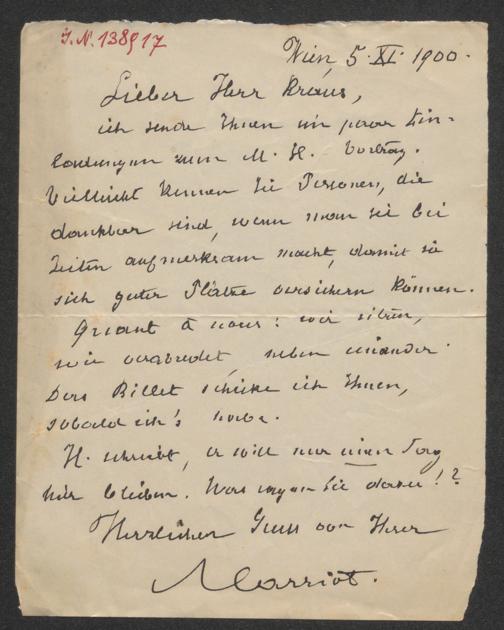 J.N. 138917
Wien, 5. XI. 1900.
Lieber Herr Kraus,
ich sende Ihnen ein paar Ein-
ladungen zum M. H. Vortrag.
Vielleicht kennen Sie Personen, die
dankbar sind, wenn man sie bei
Zeiten aufmerksam macht, damit sie
sich guter Plätze versichern können.
Quant à nous: wir sitzen,
wie verabredet, neben einander.
Das Billet schicke ich Ihnen,
sobald ich's habe.
H. schreibt, er will nur einen Tag
hier bleiben. Was sagen Sie dazu!?
Herzlichen Gruss von Ihrer
Marriot.